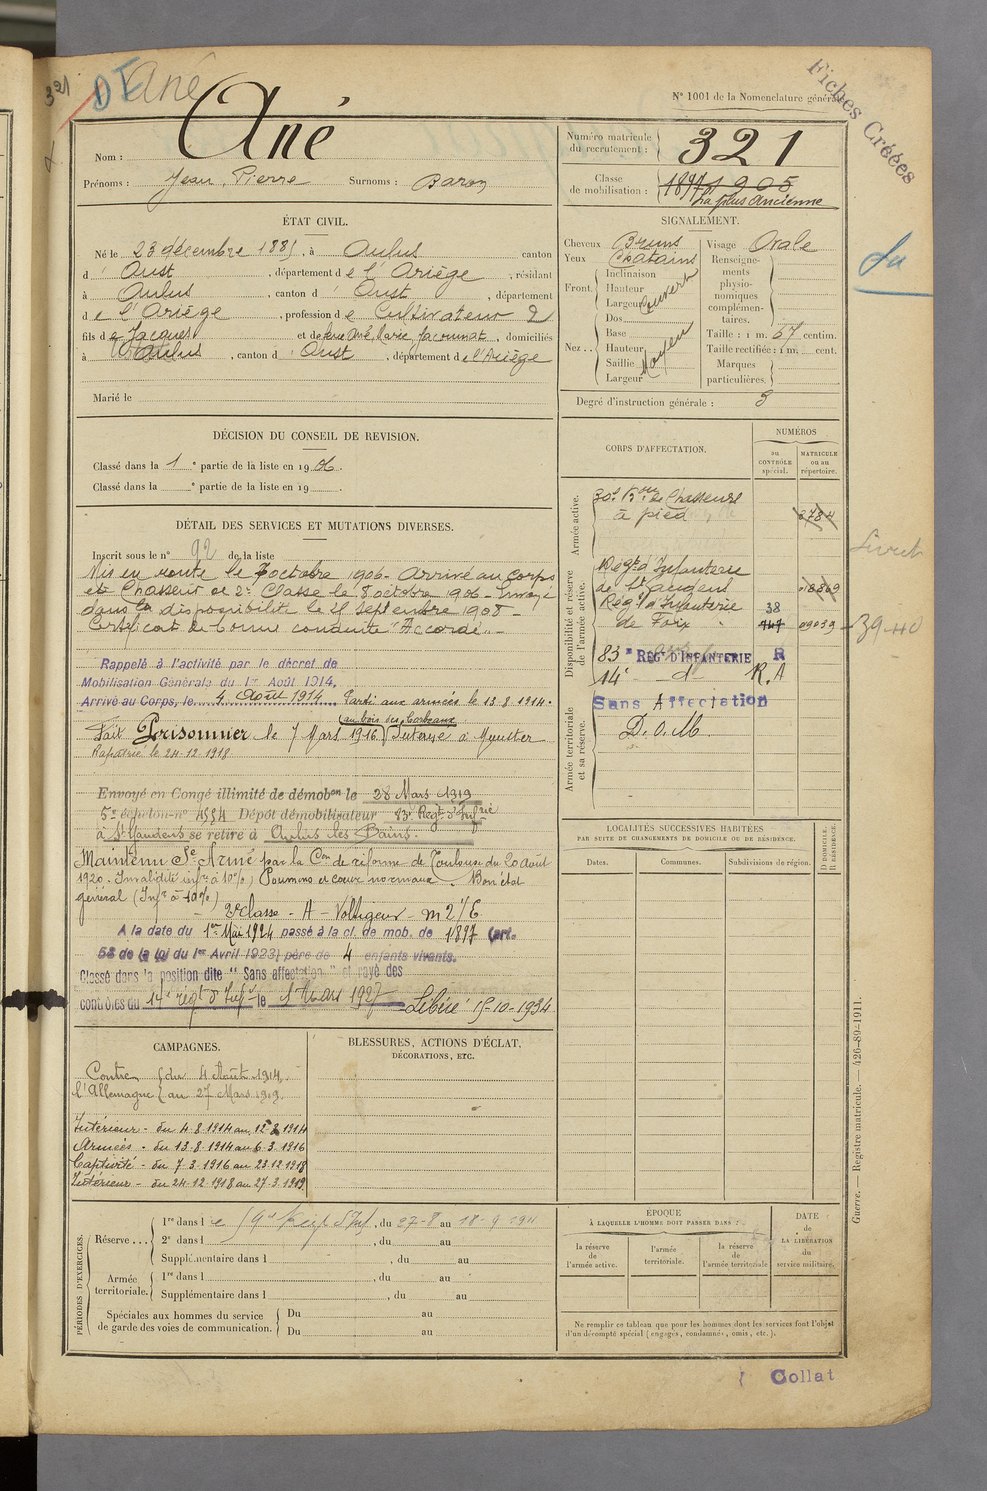 321
Ané
N° 1001 de la Nomenclature générale
Fiches Créées
Nom : Ané
Prénoms : Jean, Pierre Surnoms : Baron
Numéro matricule du recrutement : 321
Classe de mobilisation : 1897 1905
la plus ancienne
ÉTAT CIVIL.
Né le 23 décembre 1885, à Aulus canton
d' Oust, département de l'Ariège, résidant
à Aulus, canton d' Oust, département
de l'Ariège, profession de Cultivateur 2
fils de Jacques et de feue Ané, Marie Jacounat, domiciliés
à Aulus, canton d' Oust, département de l'Ariège
Marié le
SIGNALEMENT.
Cheveux Bruns Visage Ovale
Yeux Chatains
Front. Inclinaison Hauteur Largeur Couvert
Nez .. Dos Base Hauteur Saillie Largeur Moyen
Renseignements physionomiques complémentaires.
Taille : 1 m. 67 centim.
Taille rectifiée : 1 m. cent.
Marques particulières.
Degré d'instruction générale : 3
DÉCISION DU CONSEIL DE REVISION.
Classé dans la 1 e partie de la liste en 1906.
Classé dans la e partie de la liste en 19
DÉTAIL DES SERVICES ET MUTATIONS DIVERSES.
Inscrit sous le n° 92 de la liste
Mis en route le 7 octobre 1906. Arrivé au Corps
et Chasseur de 2e Classe le 8 octobre 1906 - Envoyé
dans la disponibilité le 28 Septembre 1908 -
Certificat de bonne conduite "Accordé" -
Rappelé à l'activité par le décret de
Mobilisation Générale du 1er Août 1914.
Arrivé au Corps, le 4 Août 1914. Parti aux armées le 13.8.1914.
au bois des Corbeaux
Fait Prisonnier le 7 Mars 1916 Interné à Munster
Rapatrié le 24.12.1918
Envoyé en Congé illimité de démobon le 28 Mars 1919
5e échelon n° 4594 Dépôt démobilisateur 83e Régt d'Infrie
à St Gaudens se retire à Aulus les Bains
Maintenu Sce Armé par la Con de réforme de Toulouse du 20 août
1920. Invalidité infre à 10%) Poumons et coeur normaux. Bon état
général (Infre à 10%)
2e classe - A - Voltigeur - m 2'/E
A la date du 1er Mai 1924 passé à la cl. de mob. de 1897 (art.
58 de la loi du 1er Avril 1923) père de 4 enfants vivants.
Classé dans la position dite "Sans affectation" et rayé des
contrôles du 14e régt d'Infie le 1 Mars 1927 Libéré 15-10-1934
CORPS D'AFFECTATION.
NUMÉROS
au CONTRÔLE spécial.
MATRICULE ou au répertoire.
Armée active.
30e Bon de Chasseurs
à pied 3784
Disponibilité et réserve de l'armée active.
Régt d'Infanterie
de St Gaudens
Régt d'Infanterie 38
de Foix 747 09039
83e RÉGt D'INFANTERIE R
14e d° R.A
Armée territoriale et sa réserve.
Sans Affectation
D.O.M.
Livret
39-40
LOCALITÉS SUCCESSIVES HABITÉES
PAR SUITE DE CHANGEMENTS DE DOMICILE OU DE RÉSIDENCE.
Dates. Communes. Subdivisions de région. D DOMICILE. R RÉSIDENCE.
CAMPAGNES.
Contre l'Allemagne du 4 Août 1914. au 27 Mars 1919.
Intérieur - du 4.8.1914 au 12.8.1914
Armées - du 13.8.1914 au 6.3.1916
Captivité - du 7.3.1916 au 23.12.1918
Intérieur - du 24-12-1918 au 27.3.1919
BLESSURES, ACTIONS D'ÉCLAT, DÉCORATIONS, ETC.
PÉRIODES D'EXERCICES.
Réserve ... 1re dans le 59e Régt d'Inf, du 27-8 au 18-9-1911
2e dans l , du au
Supplémentaire dans l , du au
Armée territoriale. 1re dans l , du au
Supplémentaire dans l , du au
Spéciales aux hommes du service de garde des voies de communication. Du au
Du au
ÉPOQUE
À LAQUELLE L'HOMME DOIT PASSER DANS :
la réserve de l'armée active.
l'armée territoriale.
la réserve de l'armée territoriale
DATE de LA LIBÉRATION du service militaire.
Ne remplir ce tableau que pour les hommes dont les services font l'objet
d'un décompte spécial (engagés, condamnés, omis, etc.).
Guerre. — Registre matricule. — 426-89-1911.
Collat